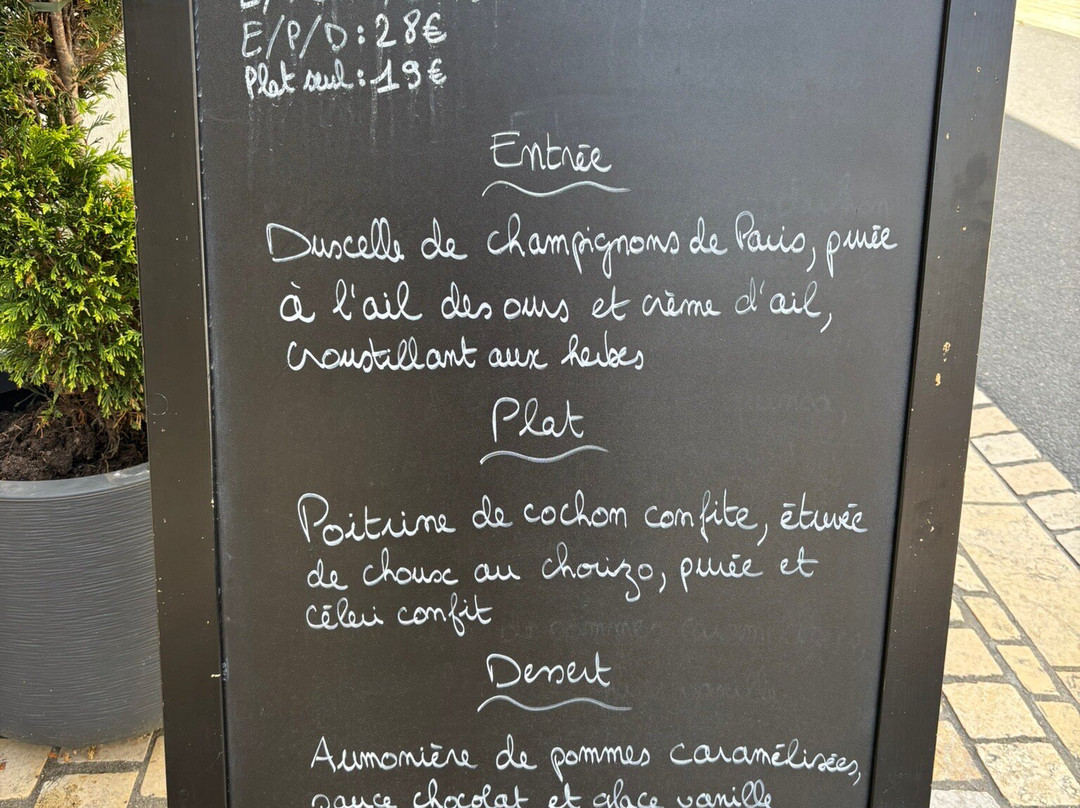 E/P/D : 28€
Plat seul : 19€
Entrée
Duscelle de champignons de Paris, purée
à l'ail des ours et crème d'ail,
croustillant aux herbes
Plat
Poitrine de cochon confite, étuvée
de choux au chorizo, purée et
céleri confit
Dessert
Aumonière de pommes caramélisées,
sauce chocolat et glace vanille